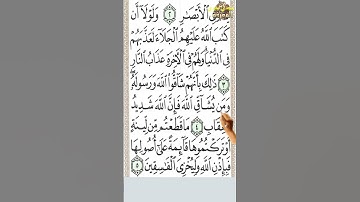 ٱلْأَبْصَٰرِ ٢ وَلَوْلَآ أَن
كَتَبَ ٱللَّهُ عَلَيْهِمُ ٱلْجَلَآءَ لَعَذَّبَهُمْ
فِى ٱلدُّنْيَا وَلَهُمْ فِى ٱلْءَاخِرَةِ عَذَابُ ٱلنَّارِ
٣ ذَٰلِكَ بِأَنَّهُمْ شَآقُّوا۟ ٱللَّهَ وَرَسُولَهُۥ
وَمَن يُشَآقِّ ٱللَّهَ فَإِنَّ ٱللَّهَ شَدِيدُ
ٱلْعِقَابِ ٤ مَا قَطَعْتُم مِّن لِّينَةٍ
أَوْ تَرَكْتُمُوهَا قَآئِمَةً عَلَىٰٓ أُصُولِهَا
فَبِإِذْنِ ٱللَّهِ وَلِيُخْزِىَ ٱلْفَٰسِقِينَ ٥